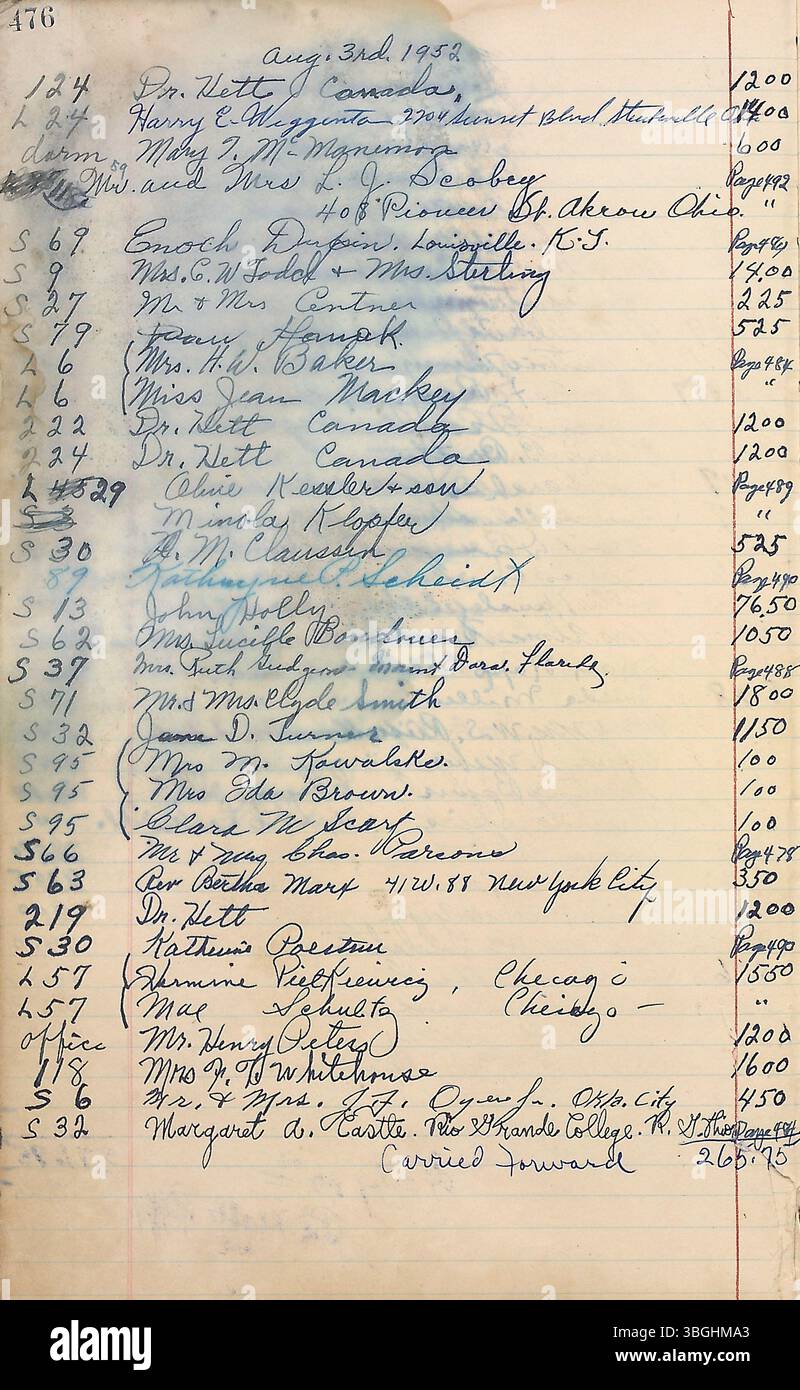 476
Aug. 3rd. 1952
124 Dr. Hett Canada. 1200
L 24 Harry E. Wigginton 2204 Sunset Blvd Steubenville 1400
dorm Mary T. McManemon 600
Mr. and Mrs L. J. Scobey Page 492
408 Pioneer St. Akron Ohio. "
S 69. Enoch Louisville. K.Y.
S 9 Mrs. C. W Todd & Mrs. Sterling 14.00
S 27 Mr & Mrs Centner 225
S 79 525
L 6 Mrs. H. W. Baker Page 484
L 6 Miss Jean Mackey "
222 Dr. Hett Canada 1200
224 Dr. Hett Canada 1200
L 29 Olive Kessler & son Page 489
Minola Klopfer "
S 30 M. Claussin 525
89 Kathryne P. Scheidt Page 490
S 13 John Holly 76.50
S 62 Mrs. Lucille 1050
S 37 Mrs. Ruth Mount Dora. Florida. Page 488
S 71 Mr. & Mrs. Clyde Smith 1800
S 32 Jane D. Turner 1150
S 95 Mrs M. Kowalske. 100
S 95 Mrs Ida Brown. 100
S 95 Clara M Scarf 100
S 66 Mr & Mrs Chas. Parsons Page 478
S 63 Rev Bertha Marx 41 W. 88 New York City 350
219 Dr. Hett 1200
S 30 Katherine Page 490
L 57 Hermine Pietkiewicz, Checago 1550
L 57 Mae Schultz Cheicgo — "
office Mr. Henry Peters 1200
118 Mrs F. T. Whitehouse 1600
S 6 Mr. & Mrs. J. F. City 450
S 32 Margaret A. Castle. Rio Grande College. R. G. Page 484
Carried Forward 265.75
alamy
Image ID: 3BGHMA3
www.alamy.com